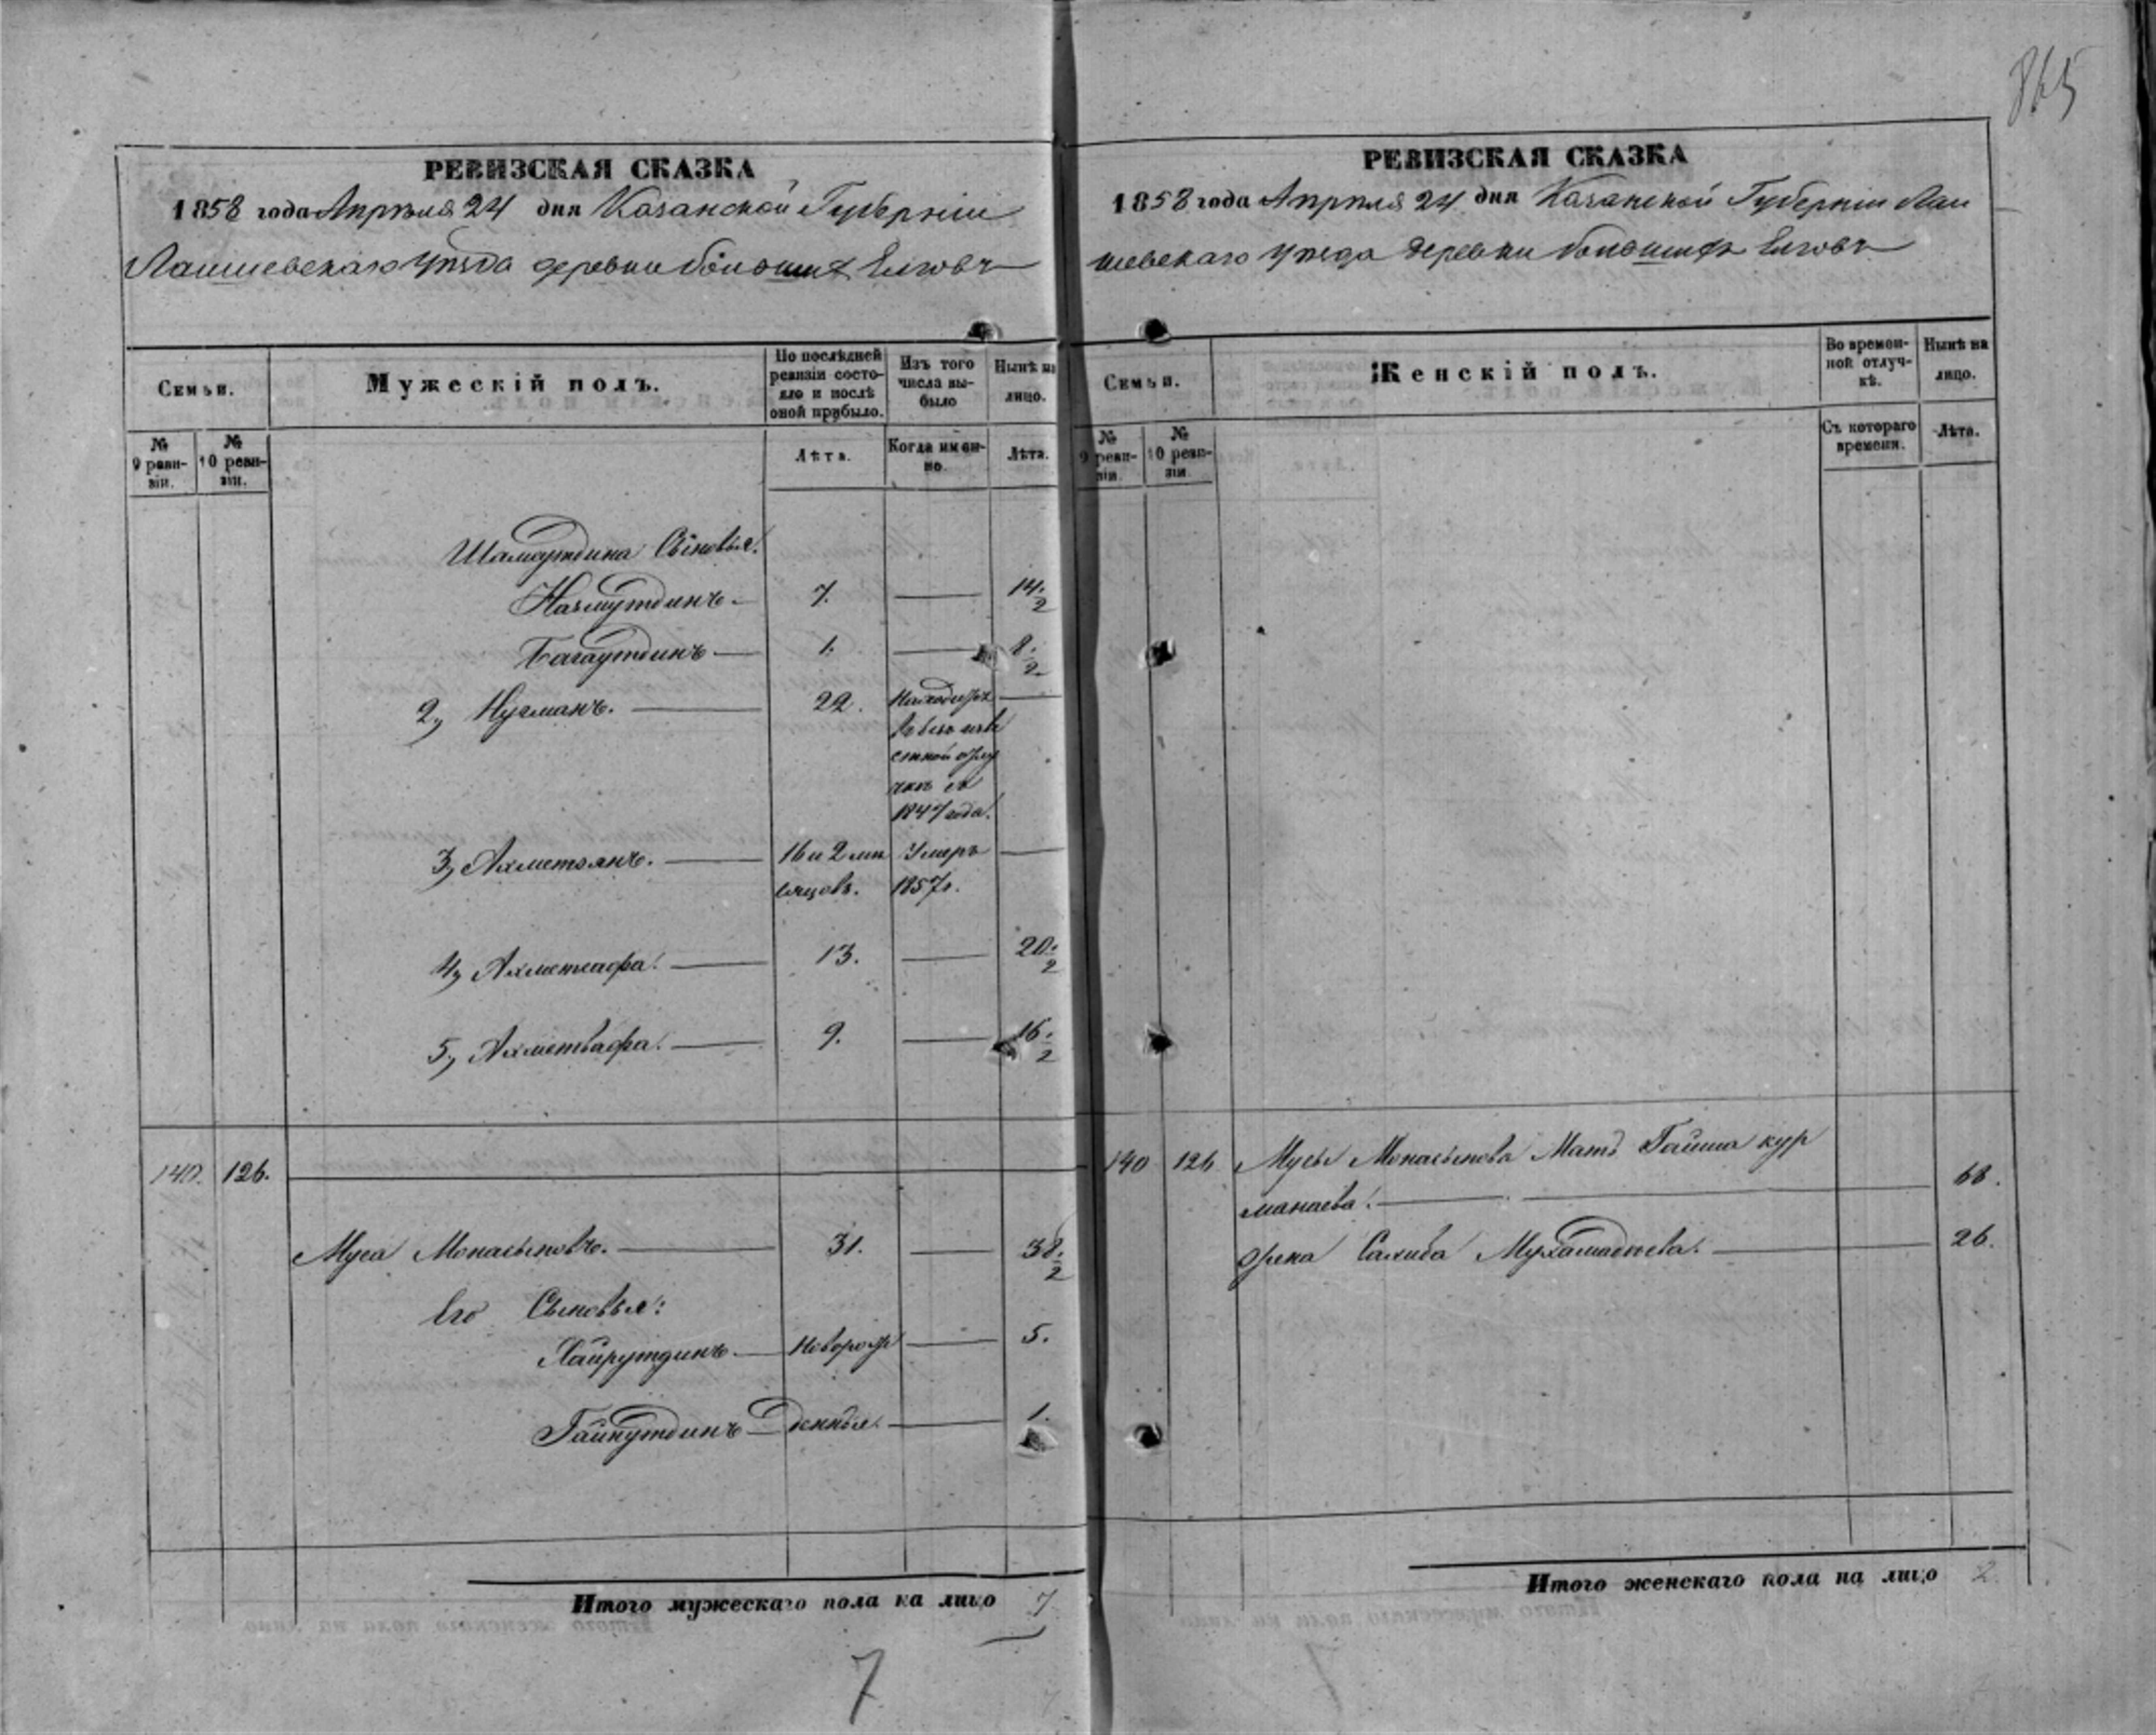 865
РЕВИЗСКАЯ СКАЗКА
1858 года Апрѣля 24 дня Казанской Губерніи
Лаишевскаго уѣзда деревни большихъ Елговъ
Семьи.
Мужескій полъ.
По послѣдней ревизіи состояло и послѣ оной прибыло.
Изъ того числа выбыло
Нынѣ на лицо.
№ 9 ревизіи.
№ 10 ревизіи.
Лѣта.
Когда именно.
Лѣта.
Шамаутдина Сыновья.
Назмутдинъ — 7. — 14 1/2
Багаутдинъ — 1. — 8 1/2
2, Нугманъ. — 22. Находится —
въ безъизвѣ
стной отлу
чкѣ съ
1847 года.
3, Ахметзянъ. — 16 и 2 мѣ Умеръ —
сяцовъ. 1857 г.
4, Ахметсафа. — 13. — 20 1/2
5, Ахметвафа. — 9. — 16 1/2
140. 126.
Муса Монасыповъ. — 31. — 38 1/2
Его Сыновья:
Хайрутдинъ — Новорож — 5.
Гайнутдинъ — денныя. — 1.
Итого мужескаго пола на лицо 7
7
РЕВИЗСКАЯ СКАЗКА
1858 года Апрѣля 24 дня Казанской Губерніи Лаи
шевскаго уѣзда деревни большихъ Елговъ
Семьи.
Женскій полъ.
Во временной отлучкѣ.
Нынѣ на лицо.
№ 9 ревизіи.
№ 10 ревизіи.
Съ котораго времени.
Лѣта.
140 126 Мусы Монасыпова Мать Гайша кур
манаева. — 68.
Жена Салиба Мухамадѣева. — 26.
Итого женскаго пола на лицо 2